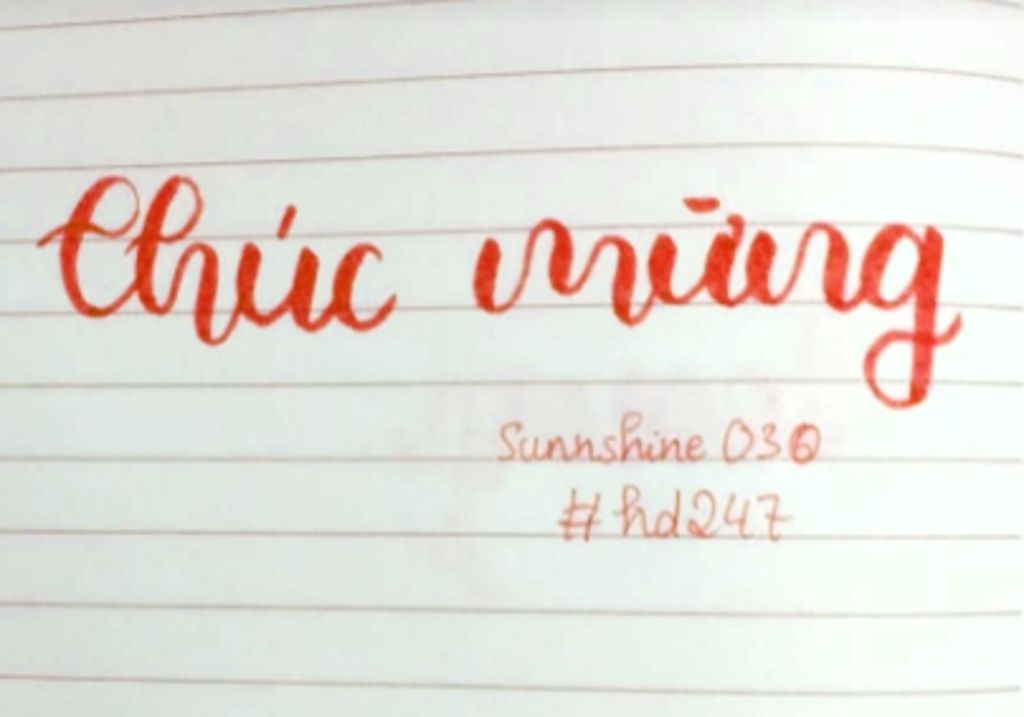 Chúc mừng
Sunnshine 030
#hd247